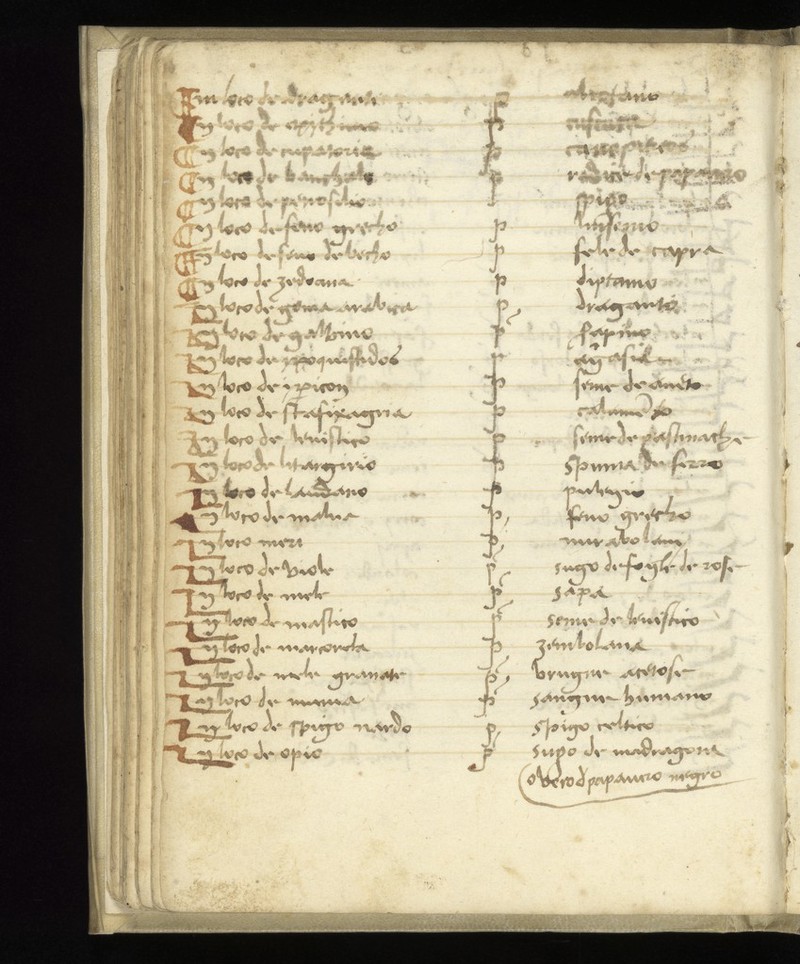 In loco de draganti p
In loco de epithimo p
In loco de eupatorio p
In loco de p radice de papavero
In loco de petrosilio spigo
In loco de feno grecho p linsemo
In loco de fele de becho p fele de capra
In loco de zedoaria p diptamo
In loco de goma arabica p draganti
In loco de galbino p sapino
In loco de ypoquistidos p
In loco de ypicon p seme de aneto
In loco de stafixagria p calamento
In loco de levistico p seme de pastinache
In loco de litargirio p spuma de ferro
In loco de laudano p pulegio
In loco de malva p feno grecho
In loco meri p mirabolani
In loco de viole p sugo de foglie de rose
In loco de mele p sapa
In loco de mastico p seme de levistico
In loco de p
In loco de mele granate p brugne acetose
In loco de mumia p sangue humano
In loco de spigo nardo p spigo celtico
In loco de opio p supo de madragora
o de papavero negro